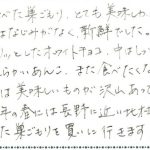 た巣ごもり、とても美味しか
はなじみがなく新鮮でした。
っとしたホワイトチョコ、中はし
らかいあんこ。また食べたくな
は美味しいものが沢山あって
年の春には長野に近い地村
た巣ごもりを買いに行きます